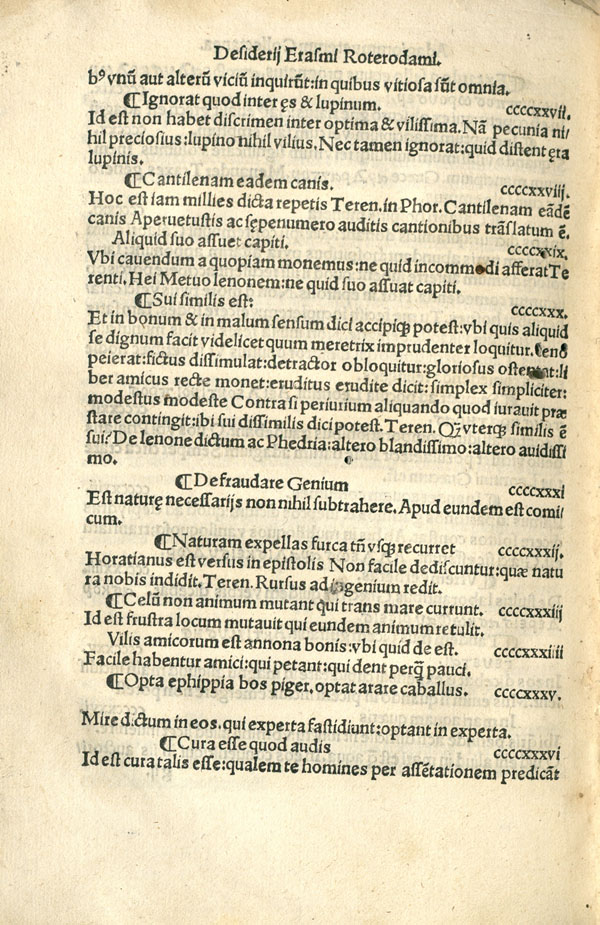 Desiderij Erasmi Roterodami.
bꝰ vnũ aut alterũ viciũ inquirũt:in quibus vitiosa sũt omnia.
¶Ignorat quod inter ęs & lupinum. ccccxxvij.
Id est non habet discrimen inter optima & vilissima. Nã pecunia ni/
hil preciosius:lupino nihil vilius. Nec tamen ignorat:quid distent ęra
lupinis.
¶Cantilenam eadem canis. ccccxxviij.
Hoc est iam millies dicta repetis Teren. in Phor. Cantilenam eãdẽ
canis Aperuetustis ac sępenumero auditis cantionibus trãslatum ẽ.
Aliquid suo assuet capiti. ccccxxix.
Vbi cauendum a quopiam monemus:ne quid incommodi afferat Te
renti. Hei Metuo lenonem:ne quid suo assuat capiti.
¶Sui similis est: ccccxxx.
Et in bonum & in malum sensum dici accipiqꝫ potest:vbi quis aliquid
se dignum facit videlicet quum meretrix imprudenter loquitur. leno
peierat:fictus dissimulat:detractor obloquitur:gloriosus ostentat:li
ber amicus recte monet:eruditus erudite dicit:simplex simpliciter:
modestus modeste Contra si periurium aliquando quod iurauit præ
stare contingit:ibi sui dissimilis dici potest. Teren. Qꝫ vterqꝫ similis ẽ
sui? De lenone dictum ac Phedria:altero blandissimo:altero auidissi
mo.
¶Defraudare Genium ccccxxxi
Est naturę necessarijs non nihil subtrahere. Apud eundem est comi/
cum.
¶Naturam expellas furca tñ vsqꝫ recurret ccccxxxij.
Horatianus est versus in epistolis Non facile dediscuntur:quæ natu
ra nobis indidit. Teren. Rursus ad ingenium redit.
¶Celũ non animum mutant qui trans mare currunt. ccccxxxiij
Id est frustra locum mutauit qui eundem animum retulit.
Vilis amicorum est annona bonis:vbi quid de est. ccccxxxiiii
Facile habentur amici:qui petant:qui dent perqꝫ pauci.
¶Opta ephippia bos piger, optat arare caballus. ccccxxxv.
Mire dictum in eos. qui experta fastidiunt:optant in experta.
¶Cura esse quod audis ccccxxxvi
Id est cura talis esse:qualem te homines per assẽtationem predicãt